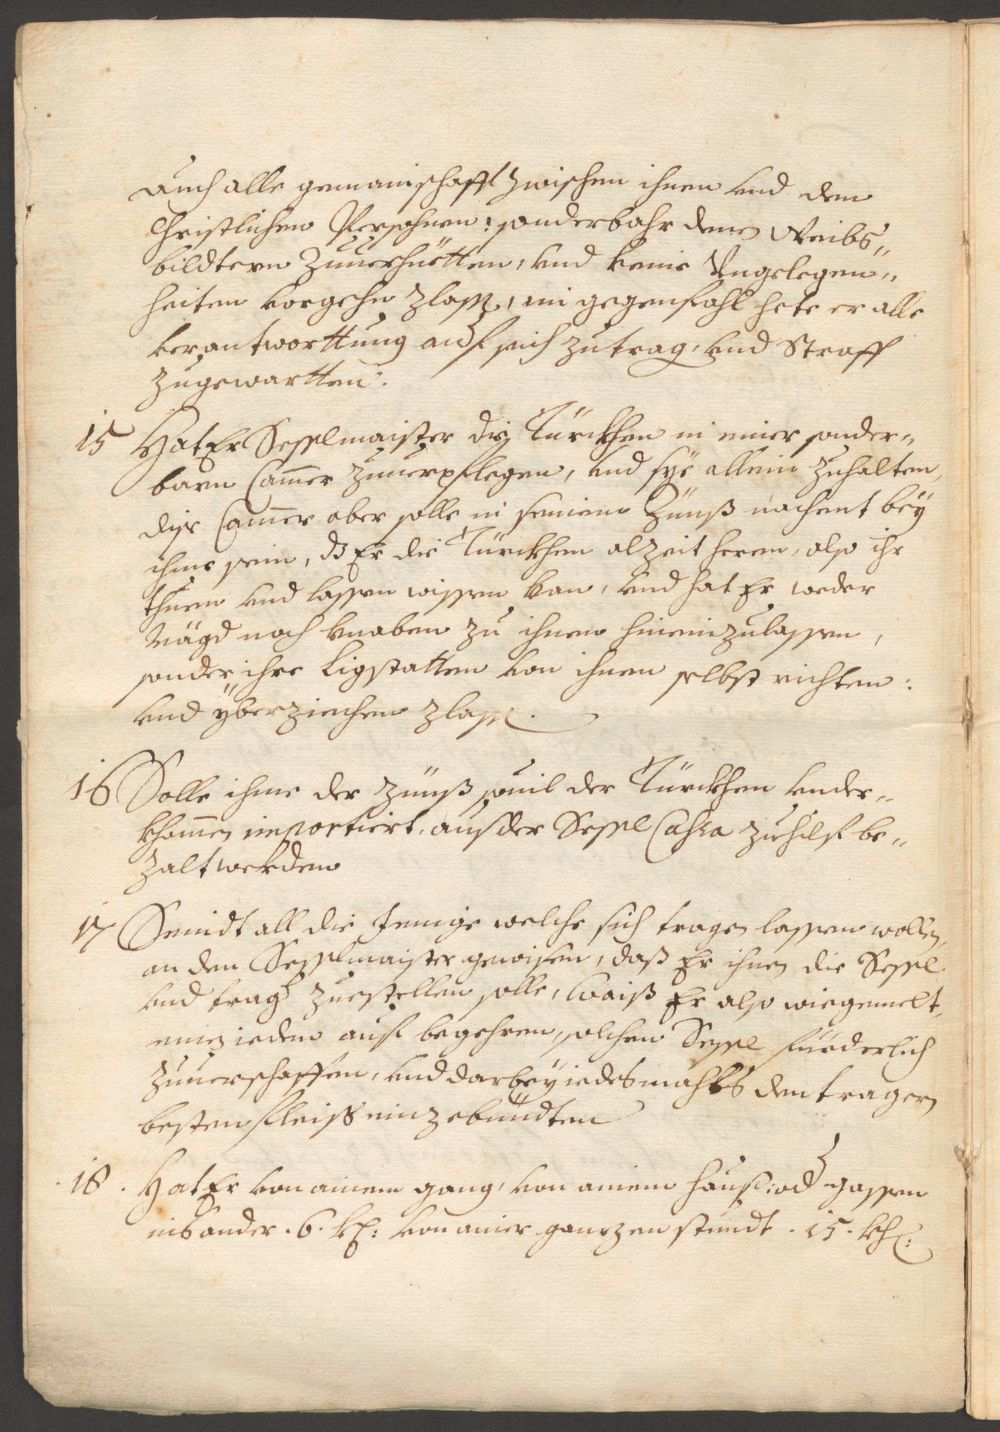 auch alle gemainschafft zwischen ihnen vnd den
Christlichen Persohnen: sonderbahr denen Weibs„
bildtern zuuerhüetten, vnd keine Vngelegen„
heiten vorgehn zlass, im gegenfahl hete er alle
verantworttung auf sich zutrag, vnd Straff
zugewartten.
15 Hat Er Sesslmaister die Türckhen in einer sonder„
baren Camer zuuerpflegen, vnd sye allein zuhalten,
dise Camer aber solle in seinem Zünß nachent bey
ihme sein, dz Er die Türckhen alzeit heren, also ihr
thuen vnd lassen wissen kan, vnd hat Er weder
Mägd noch knaben zu ihnen hineinzulassen,
sonder ihre Ligstatten von ihnen selbst richten:
vnd yberziechen zlass.
16 Solle ihme der Zünß souil der Türckhen vnder„
khomen importiert, aus der Sessl Cassa zuhilf be„
zalt werden
17 Seindt all die Jenige welche sich tragen lassen wollen,
an den Sesslmaister gewisen, daß Er ihnen die Sessl
vnd trag zuestellen solle, waiß Er also wie gemelt,
einen ieden auf begehren, solchen Sessl fürderlich
zuuerschaffen, vnd darbey iedesmahls den tragern
besten fleiss einzebündten
18. Hat Er von ainem gang, von ainem hauß: od gassen
ins ander. 6. kh: von ainer ganzen stundt. 15. kh: